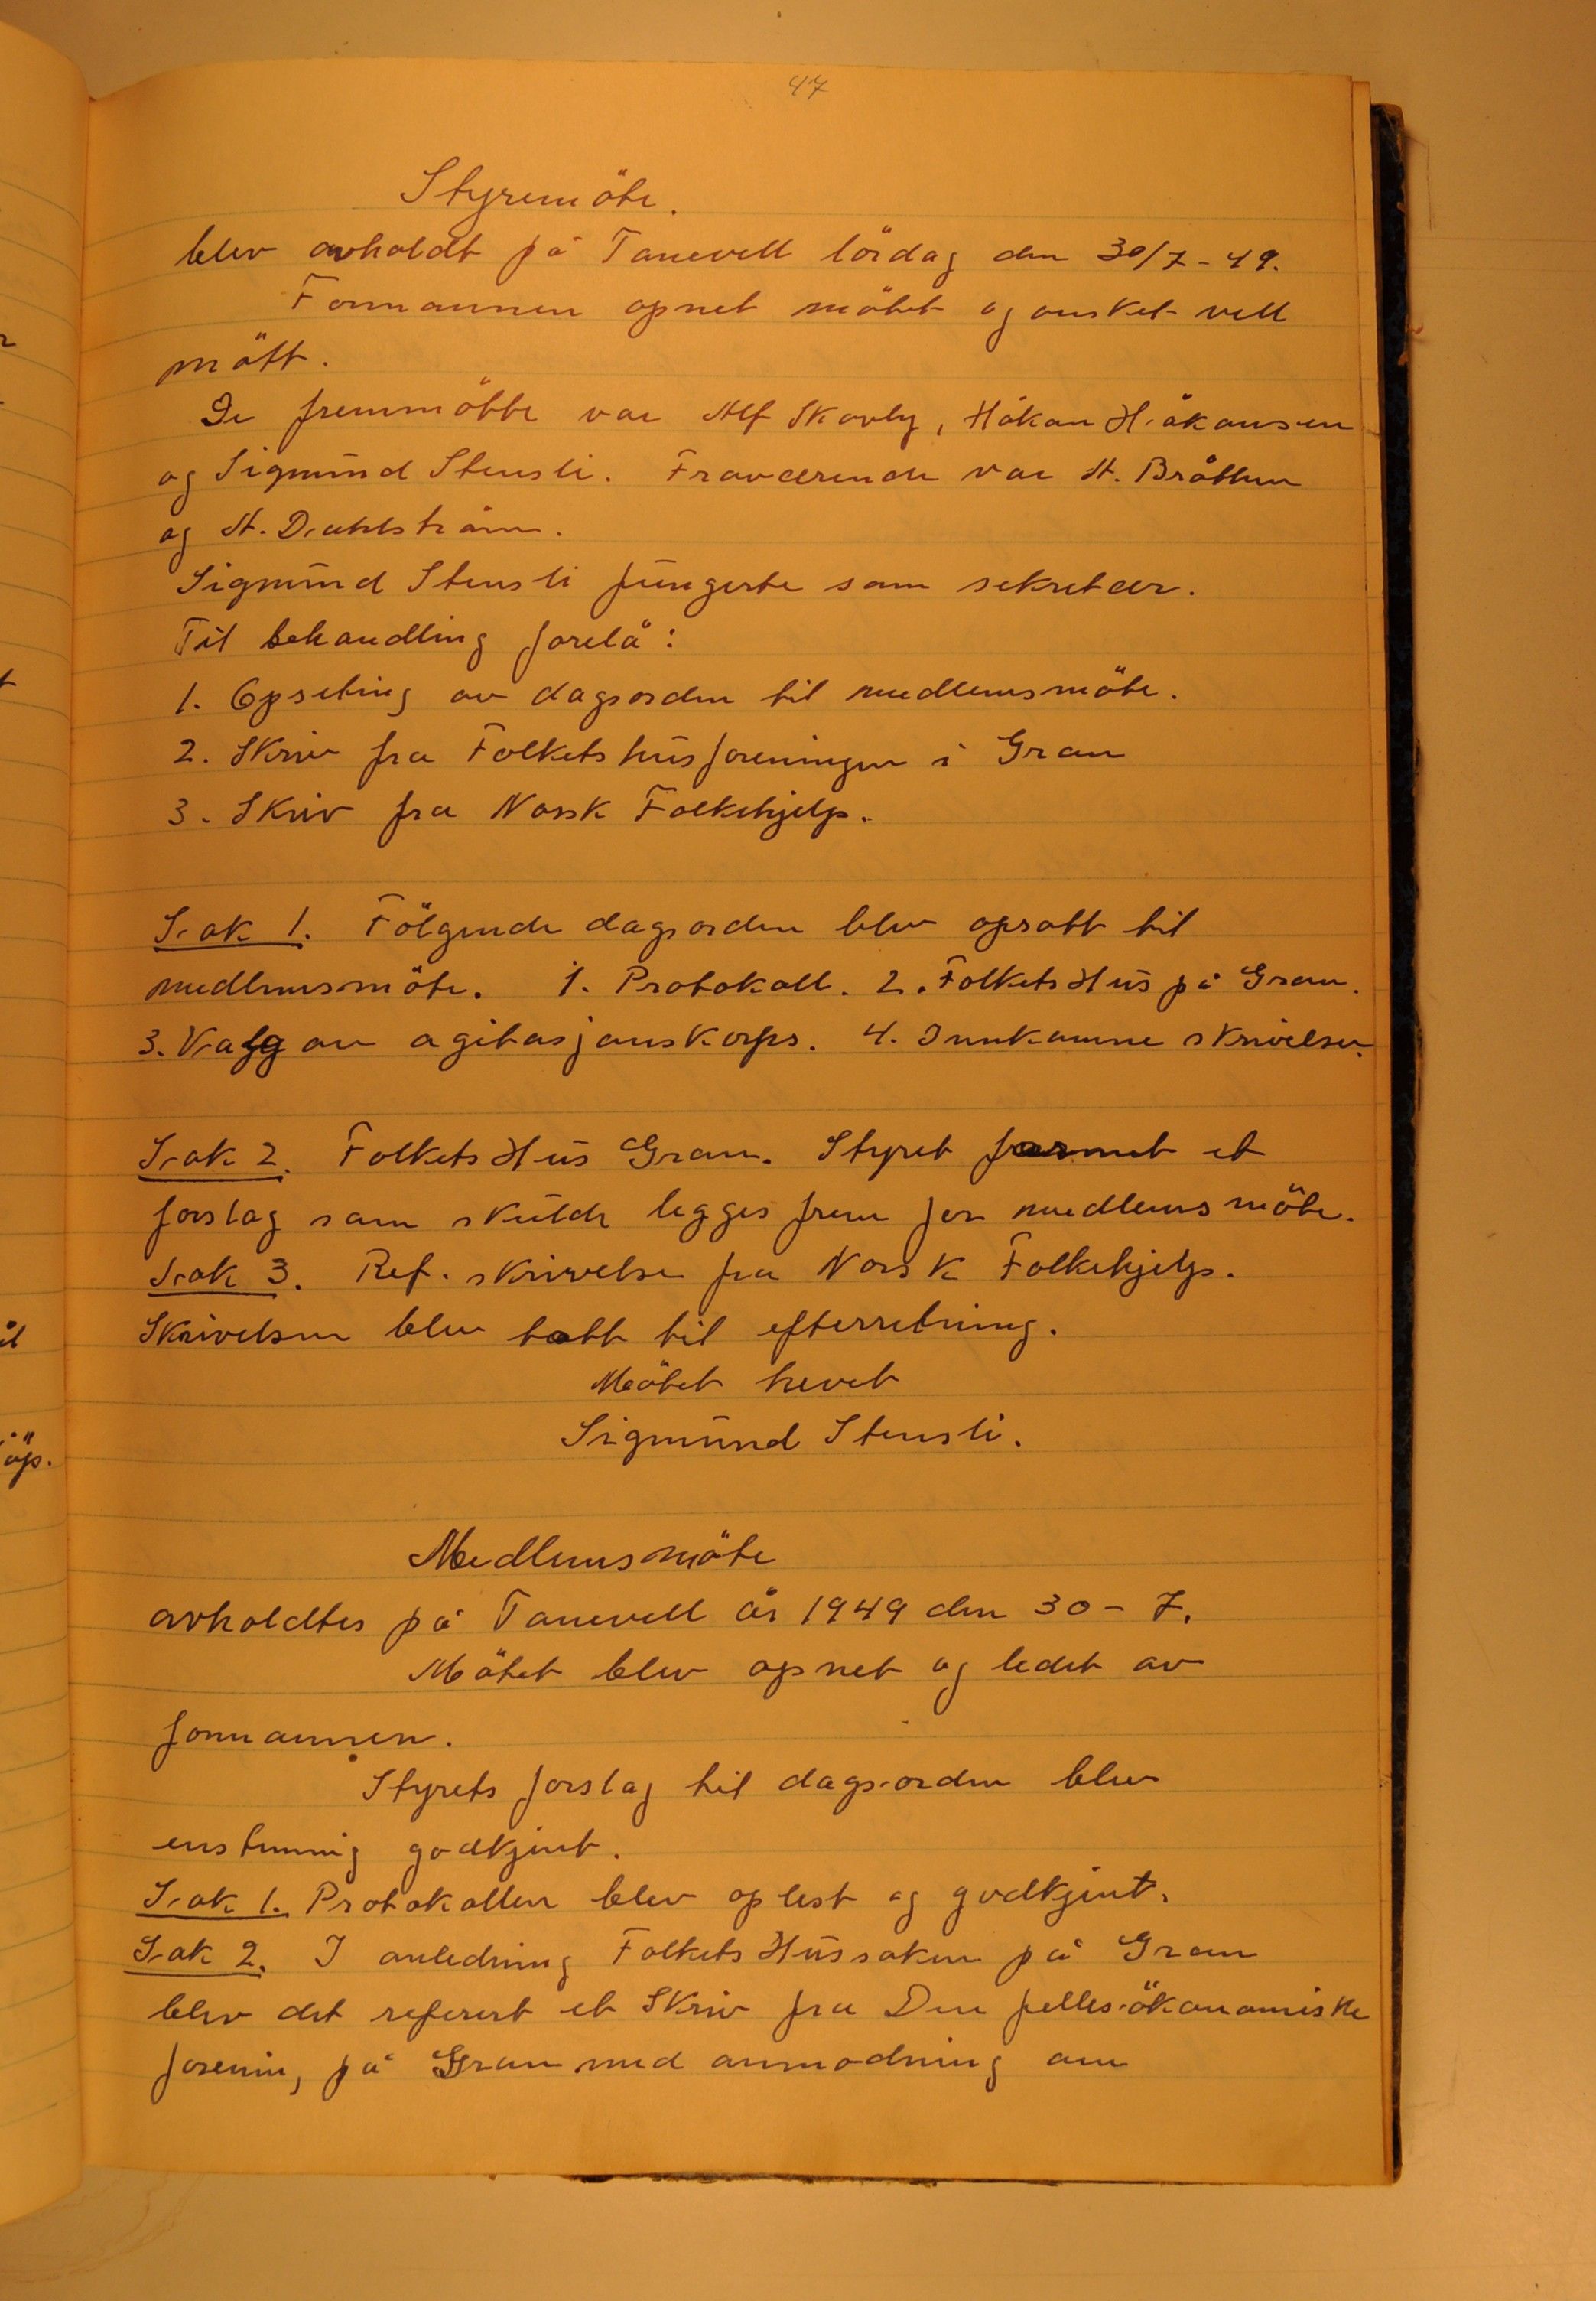 47
Styremöte.
blev avholdt på Tanevell lördag den 30/7-49.
Formannen opnet mötet og onsket vell
mött.
De fremmötte var Alf Skovly, Håkon Håkonsen
og Sigmund Stensli. Fraværende var H. Bråthen
og H. Dahlström.
Sigmund Stensli fungerte som sekretær.
Til behandling forelå:
1. Opseting av dagsorden til medlemsmöte.
2. Skriv fra Folketshusforeningen i Gran
3. Skriv fra Norsk Folkehjelp.
Sak 1. Fölgende dagsorden blev opsatt til
medlemsmöte. 1. Protokoll. 2. Folkets Hus på Gran.
3. Valg av agitasjonskorps. 4. Innkomne skrivelser.
Sak 2. Folkets Hus Gran. Styret formet et
forslag som skulde legges frem for medlemsmöte.
Sak 3. Ref. skrivelse fra Norsk Folkehjelp.
Skrivelsen blev tatt til efterretning.
Mötet hevet
Sigmund Stensli.
Medlemsmöte
avholdtes på Tanevell år 1949 den 30-7.
Mötet blev opnet og ledet av
formannen.
Styrets forslag til dagsorden blev
enstemmig godkjent.
Sak 1. Protokollen blev oplest og godkjent.
Sak 2. I anledning Folkets Hussaken på Gran
blev det referert et skriv fra Den fellesökonomiske
forening på Gran med anmodning om